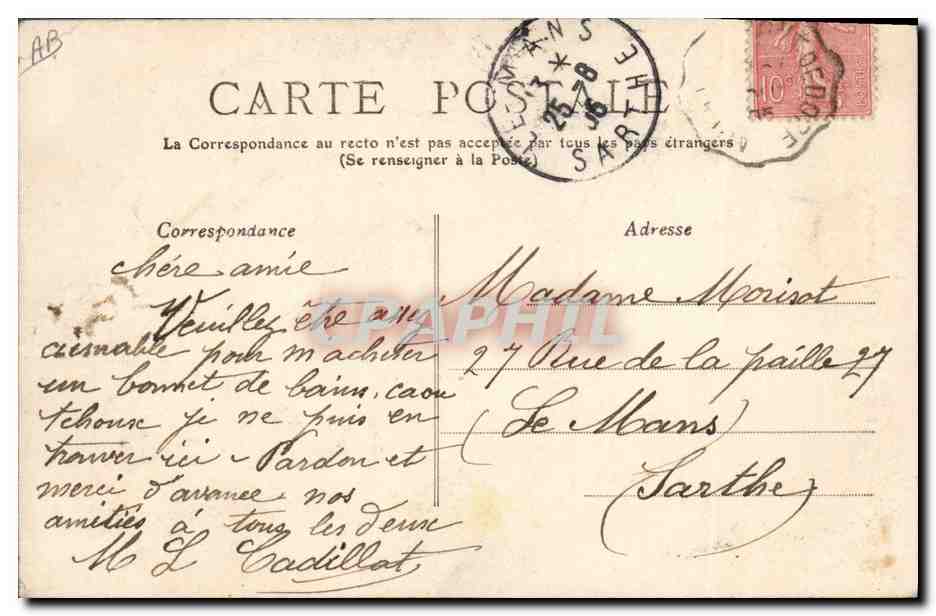 AB
CARTE POSTALE
La Correspondance au recto n'est pas acceptée par tous les pays étrangers
(Se renseigner à la Poste)
LE MANS
SARTHE
3 *
25 -8
06
10
Correspondance
Adresse
chére amie
Veuillez être assez
aiemable pour m acheter
un bonnet de bains, caou
tchouc je ne puis en
trouver ici - Pardon et
merci d'avance nos
amitiés à tous les deux
M L Cadillat
Madame Morisot
27 Rue de la paille 27
(Le Mans)
Sarthe)
CPAPHIL